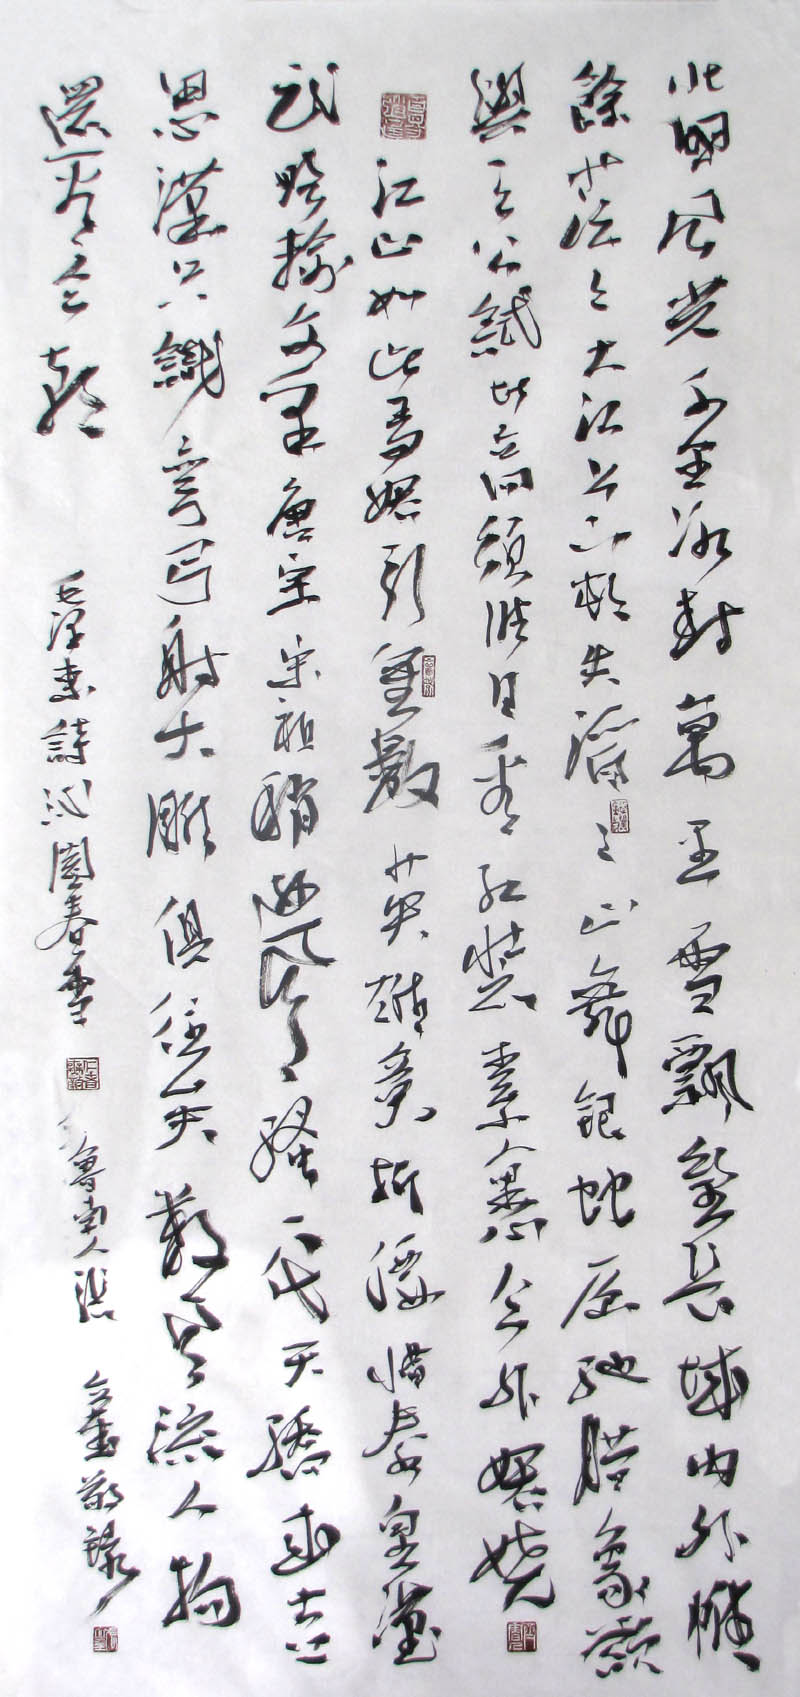 北國風光千里冰封萬里雪飄望長城内外惟
餘莽莽大江上下頓失滔滔山舞銀蛇原馳腊象欲
與天公試比高須晴日看紅裝素裹分外嬈
江山如此多嬌引無數英雄競折腰惜秦皇漢
武略輸文采唐宗宋祖稍遜風騷一代天驕成吉
思漢只識彎弓射大雕俱往矣數風流人物
還看今朝
毛澤東詩沁園春雪
魯南人張
敬錄